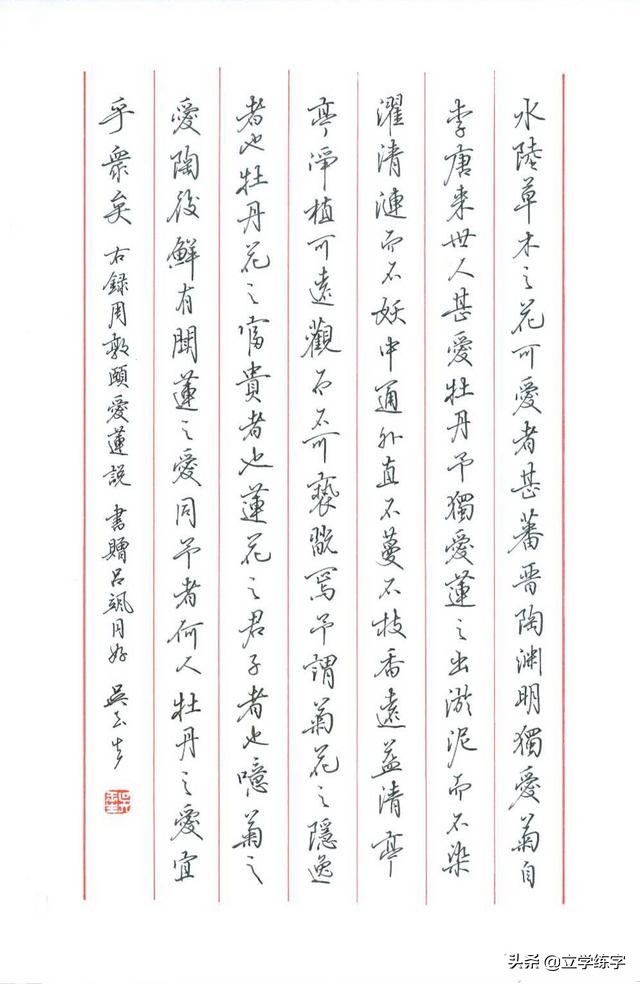 水陸草木之花可愛者甚蕃晋陶渊明獨愛菊自
李唐来世人甚愛牡丹予獨愛蓮之出淤泥而不染
濯清漣而不妖中通外直不蔓不枝香遠益清亭
亭淨植可遠觀而不可褻翫焉予謂菊花之隱逸
者也牡丹花之富貴者也蓮花之君子者也噫菊之
愛陶後鮮有聞蓮之愛同予者何人牡丹之愛宜
乎衆矣 右録周敦頤愛蓮説 書贈吕颯同好 吴玉生
头条 @立学练字